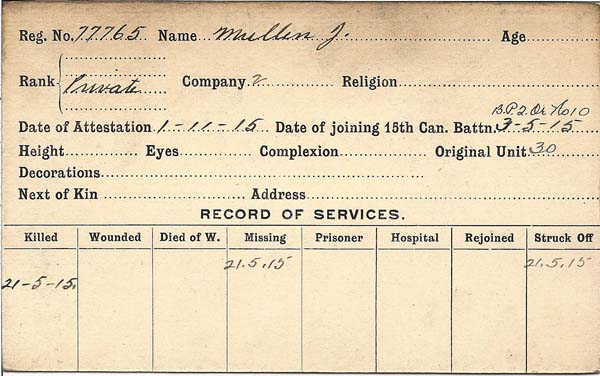 Reg. No. 77765 Name Mullen J. Age
Rank Private Company 2 Religion
B.P.2.Or No 10
Date of Attestation 1-11-15 Date of joining 15th Can. Battn. 3-5-15
Height Eyes Complexion Original Unit 30
Decorations
Next of Kin Address
RECORD OF SERVICES.
Killed Wounded Died of W. Missing Prisoner Hospital Rejoined Struck Off
21.5.15 21.5.15
21-5-15.